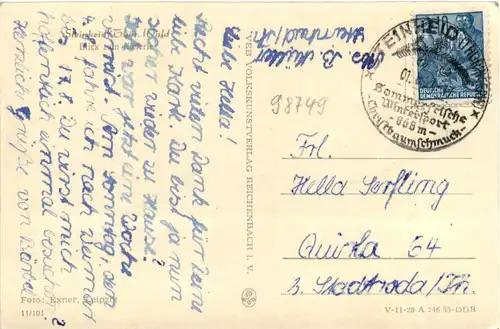 Steinheid/Thür. Wald
Blick vom Kieferle
Liebe Hella!
Recht vielen Dank für Deine
liebe Karte. Du bist ja nun
sicher wieder zu Hause!
war jetzt eine Woche
Am Sonntag, dem
4.9. fahre ich nach Weimar
bis 17.8. Du wirst mich
hoffentlich einmal besuchen?
Herzliche Grüße von Bärbel
Foto: Exner, Leipzig
11/101
VEB VOLKSKUNSTVERLAG REICHENBACH I. V.
Abs. B. Müller
Steinheid/Th.
98749
STEINHEID (THÜRINGERWALD)
01.
Sommerfrische
Wintersport
-808m-
Christbaumschmuck
DEUTSCHE
DEMOKRATISCHE REPUBLIK
Frl.
Hella Serfling
Quirla 64
b. Stadtroda/Th.
V-11-28 A 246 55-DDR